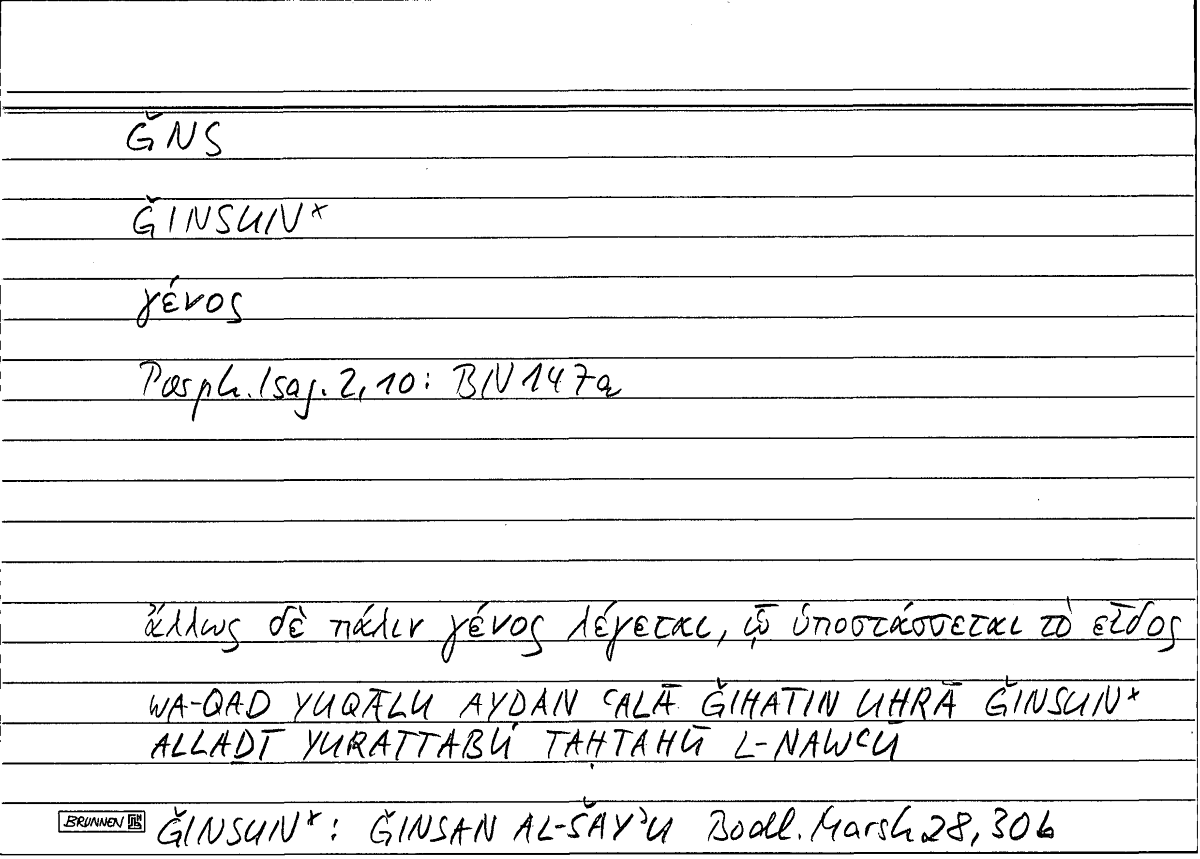 ǦNS
ǦINSUN*
γένος
Porph. Isag. 2, 10: BN 147a
ἄλλως δὲ πάλιν γένος λέγεται, ᾧ ὑποτάσσεται τὸ εἶδος
WA-QAD YUQĀLU AYḌAN ʿALĀ ǦIHATIN UḪRĀ ǦINSUN*
ALLAḎĪ YURATTABU TAḤTAHŪ L-NAWʿU
BRUNNEN ǦINSUN*: ǦINSAN AL-ŠAYʾU Bodl. Marsh 28, 30b